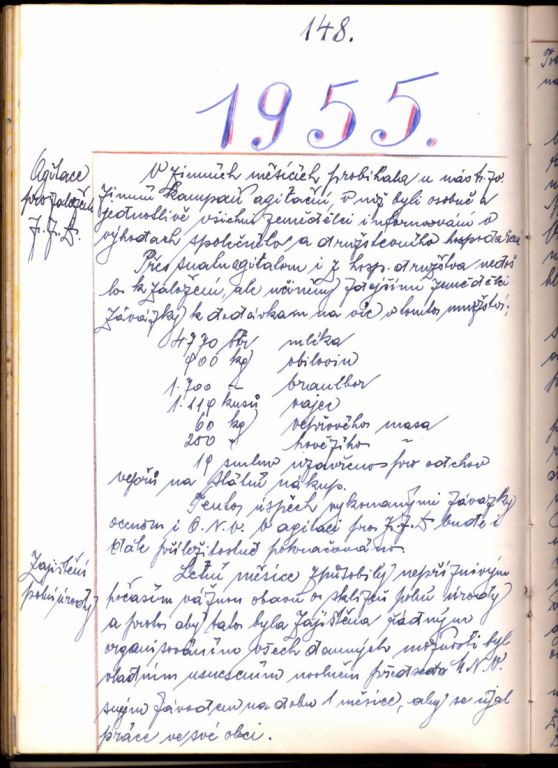 148.
1955.
Agitace
pro založení
J.Z.D.
V zimních měsících probíhala u nás t. zv.
zimní kampaň agitační, v níž byli osobně a
jednotlivě všichni zemědělci informováni o
výhodách společného a družstevního hospodaření.
Přes snahu agitátorů z hosp. družstva nedoš
lo k založení, ale učiněny zdejšími zemědělci
závazky k dodávkám na víc v tomto množství:
4770 ltr mléka
900 kg obilovin
1.700 " brambor
1.119 kusů vajec
60 kg vepřového masa
200 " hovězího "
19 smluv uzavřeno pro odchov
vepřů na státní nákup.
Tento úspěch vykonanými závazky
oceněn i O.N.V. V agitaci pro J.Z.D. bude i
dále příležitostně pokračováno.
Zajištění
polní úrody
Letní měsíce způsobily nepříznivým
počasím vážnou obavu o sklizeň polní úrody
a proto, aby tato byla zajištěna řádným
organisováním všech daných možností byl
vládním usnesením uvolněn předseda M.N.V.
svým závodem na dobu 1 měsíce, aby se ujal
práce ve své obci.